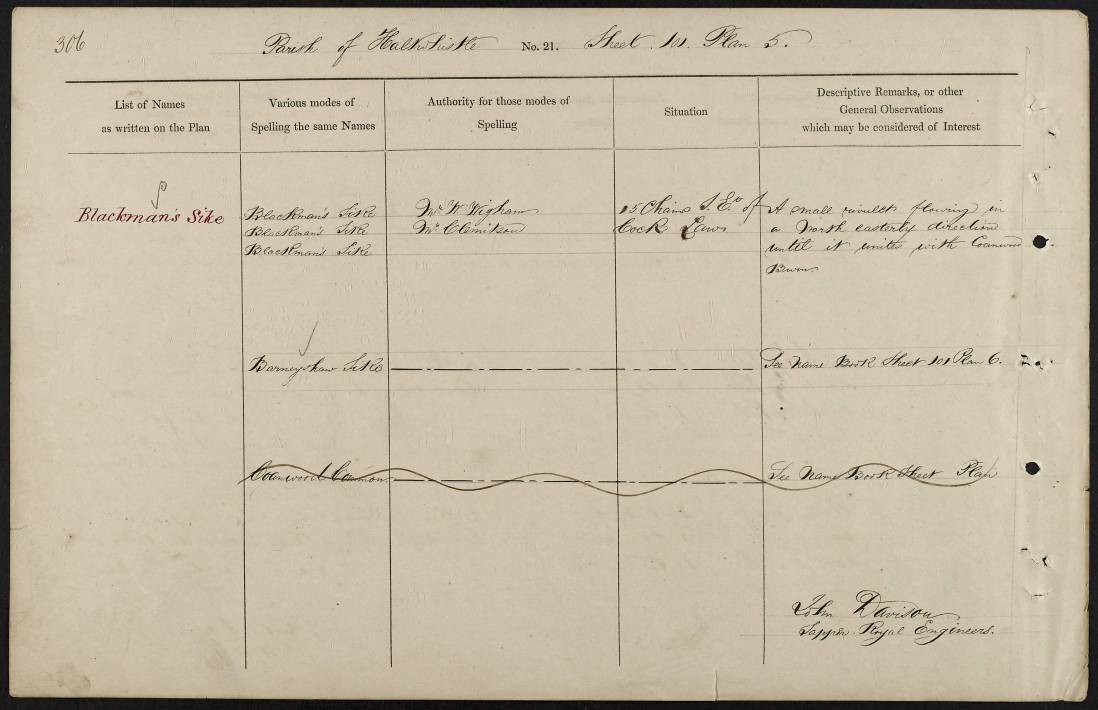 306
Parish of Haltwhistle No. 21. Sheet 101. Plan 5.
List of Names
as written on the Plan
Various modes of
Spelling the same Names
Authority for those modes of
Spelling
Situation
Descriptive Remarks, or other
General Observations
which may be considered of Interest
Blackman's Sike
Blackman's Sike
Blackman's Sike
Blackman's Sike
Mr. W. Wigham
Mr. Clemitson
15 Chains S.E. of
Cock Laws
A small rivulet flowing in
a North easterly direction
until it unites with Coanwood
Burn.
Barneyshaw Sike
See Name Book Sheet 101 Plan 6.
Coanwood Common
See Name Book Sheet Plan
John Davison
Sapper Royal Engineers.